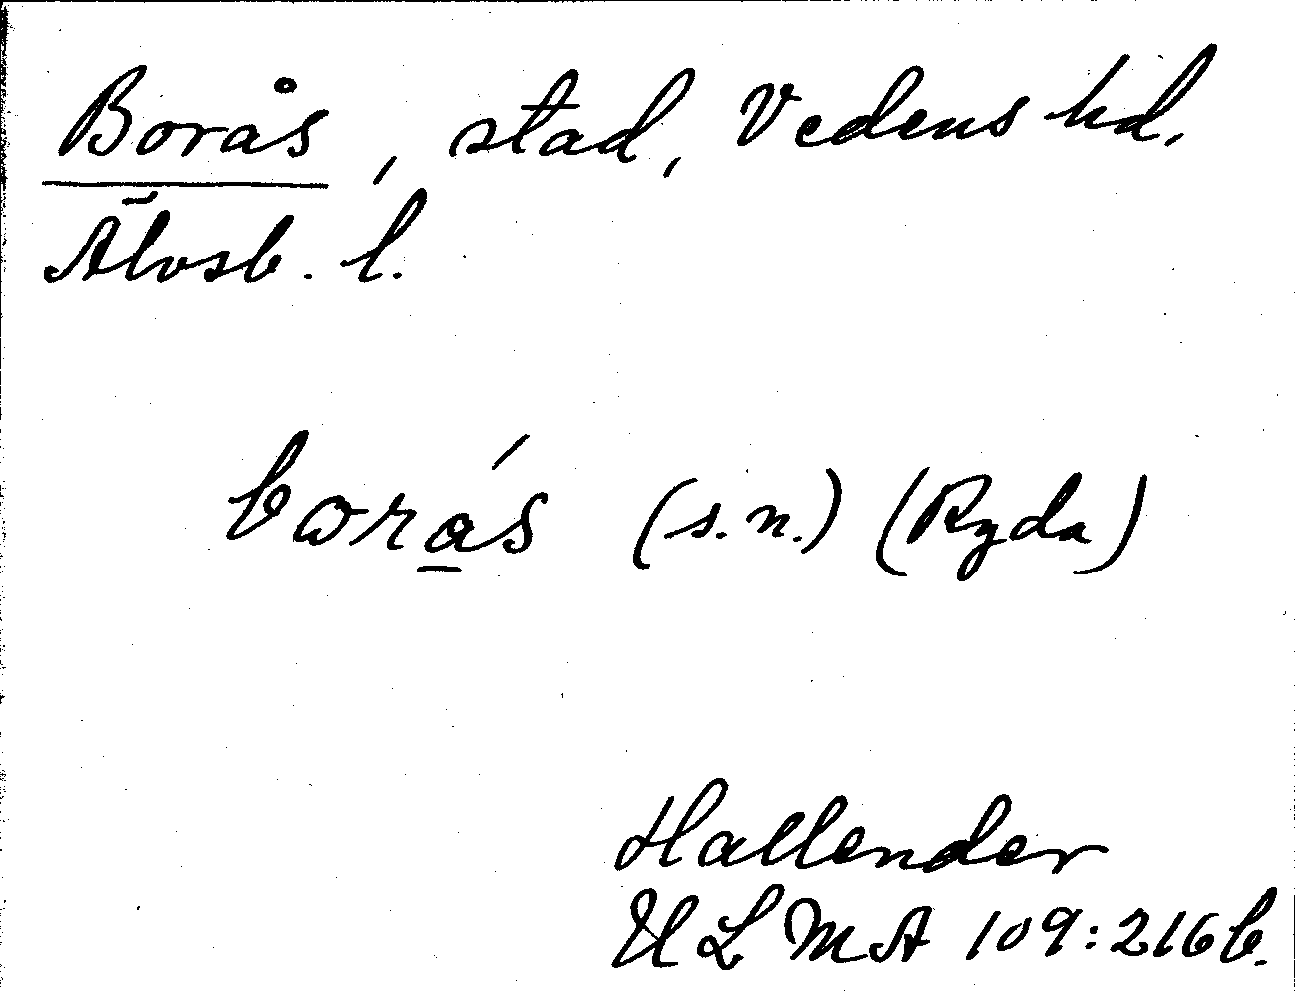 Borås, stad, Vedens hd.
Älvsb. l.
bꞷrá̱s (s.n.) (Ryda)
Hallender
ULMA 109:216b.